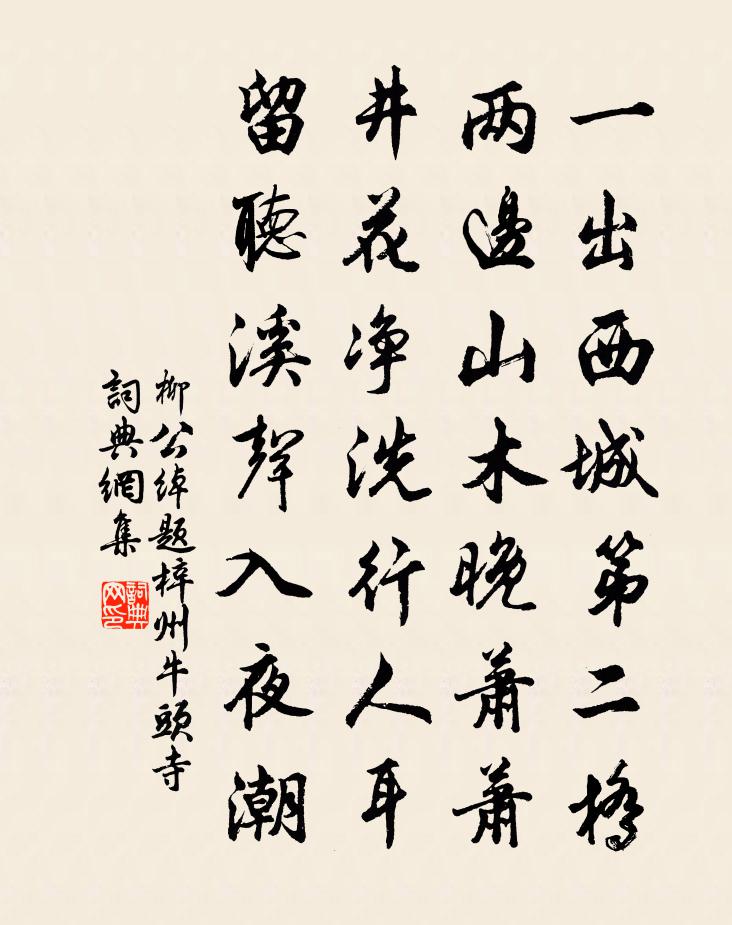 一出西城第二橋
两邊山木晚蕭蕭
井花净洗行人耳
留聽溪聲入夜潮
柳公綽题梓州牛頭寺
詞典網集
詞典网印